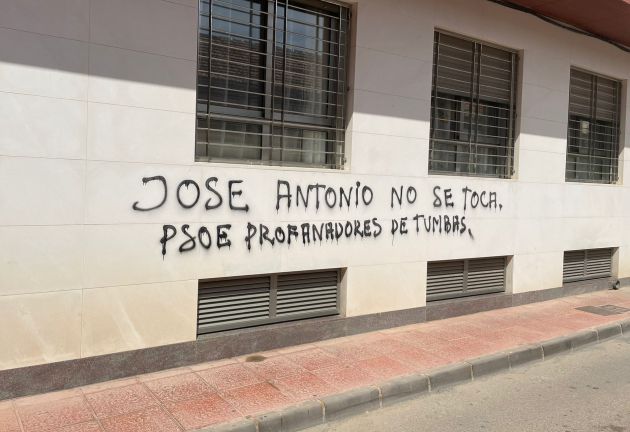 JOSE ANTONIO NO SE TOCA.
PSOE PROFANADORES DE TUMBAS.